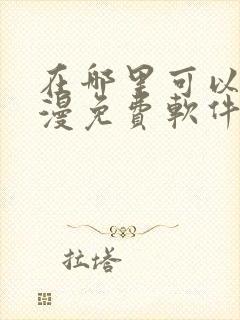 在哪里可以
漫免費軟件
拉塔